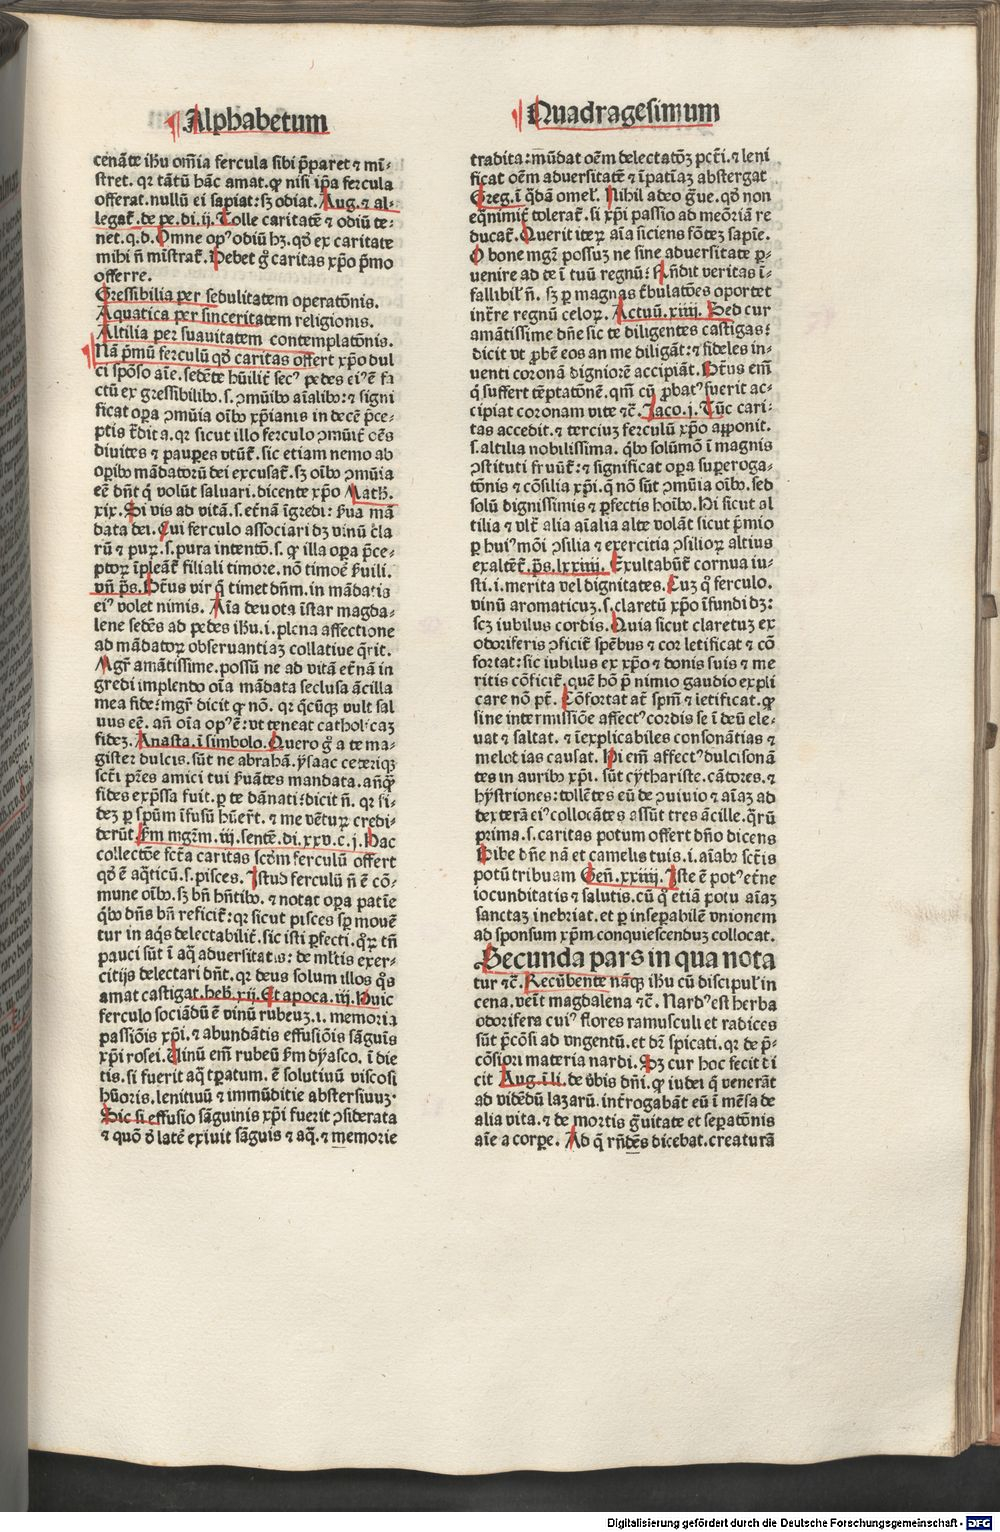 Alphabetum
Quadragesimum
cenãte ihu om̃ia fercula sibi p̃paret ⁊ mĩ-
stret. qr tãtũ hãc amat. ꝙ nisi ip̃a fercula
offerat. nullũ ei sapiat: sꝫ odiat. Aug. ⁊ al-
legat̃. de pe. di. ij. Tolle caritatẽ ⁊ odiũ te-
net. q. d. Omne opꝰ odiũ hꝫ. qð ex caritate
mihi ñ mĩstrat̃. Debet g̃ caritas xp̃o p̃mo
offerre.
Gressibilia per sedulitatem operatõnis.
Aquatica per sinceritatem religionis.
Altilia per suauitatem contemplatõnis.
Nã p̃mũ ferculũ qð caritas offert xp̃o dul
ci spõso aĩe. sedẽte hũilit̃ secꝰ pedes eiꝰ ẽ fa
ctũ ex gressibilibꝰ. s. ꝯmũibꝰ aĩalibꝰ: ⁊ signi
ficat oꝑa ꝯmũia oĩbꝰ xp̃ianis in decẽ p̃ce-
ptis t̃dita. qr sicut illo ferculo ꝯmũit̃ oẽs
diuites ⁊ pauꝑes vtũt̃. sic etiam nemo ab
oꝑibꝰ mãdatorũ dei excusat̃. sꝫ oĩbꝰ ꝯmũia
eẽ dñt q̃ volũt saluari. dicente xp̃o Math.
xix. Si vis ad vitã. s. et̃nã ĩgredi: s̃ua mã
data dei. Cui ferculo associari dꝫ vinũ cla
rũ ⁊ puꝝ. s. pura intentõ. s. ꝙ illa oꝑa p̃ce-
ptoꝝ ĩpleãt̃ filiali timore. nõ timoẽ s̃uili.
vñ p̃s. Bt̃us vir q̃ timet dñm. in mãdatis
eiꝰ volet nimis. Aĩa deuota ĩstar magda-
lene sedẽs ad pedes ihu. i. plena affectione
ad mãdatoꝝ obseruantiaꝫ collatiue q̃rit.
Mgr̃ amãtissime. possũ ne ad vitã et̃nã in
gredi implendo oĩa mãdata seclusa ãcilla
mea fide: mgr̃ dicit ꝙ nõ. qr q̃cũqꝫ vult sal
uus eẽ. añ oĩa opꝰ ẽ: vt teneat catholicaꝫ
fideꝫ. Anasta. ĩ simbolo. Quero g̃ a te ma-
gister dulcis. sũt ne abrahã. ysaac ceteriqꝫ
sct̃i pr̃es amici tui s̃uãtes mandata. añqꝫ
fides exp̃ssa fuit. ꝑ te dãnati: dicit ñ. qr fi-
deꝫ ꝑ spũm ĩfusũ hũert̃. ⁊ me vẽtuꝝ credi-
derũt. s̃m mgr̃m. iij. sentẽ. di. xxv. c. j. Hac
collectõe fct̃a caritas scðm ferculũ offert
qð ẽ aq̃ticũ. s. pisces. Istud ferculũ ñ ẽ cõ-
mune oĩbꝰ. sꝫ bñ hñtibꝰ. ⁊ notat oꝑa patĩe
q̃bꝰ dñs bñ reficit̃: qr sicut pisces sp̃ mouẽ
tur in aq̃s delectabilit̃. sic isti ꝑfecti. q̃ꝝ tñ
pauci sũt ĩ aq̃ aduersitatis: de ml̃tis exer-
citijs delectari dñt. qr deus solum illos q̃s
amat castigat. heb̃. xij. Et apoca. iij. Huic
ferculo sociãdũ ẽ vinũ rubeuꝫ. i. memoria
passiõis xp̃i. ⁊ abundãtis effusiõis sãguĩs
xp̃i rosei. Uinũ em̃ rubeũ s̃m dyasco. ĩ die
tis. si fuerit aq̃ tꝑatum. ẽ solutiuũ viscosi
hũoris. lenitiuũ ⁊ immũditie abstersiuuꝫ.
Sic si effusio sãguinis xp̃i fuerit ꝯsiderata
⁊ quõ ð latẽ exiuit sãguis ⁊ aq̃. ⁊ memorie
tradita: mũdat oẽm delectatõꝫ pct̃i. ⁊ leni
ficat oẽm aduersitatẽ ⁊ ĩpatiaꝫ abstergat
Greg. ĩ q̃dã omel̃. Nihil adeo g̃ue. qð non
eq̃nimit̃ tolerat̃. si xp̃i passio ad meõriã re
ducat̃. Querit iteꝝ aĩa siciens fõteꝫ sapĩe.
O bone mgr̃ possuꝫ ne sine aduersitate ꝑ-
uenire ad te ĩ tuũ regnũ: Rñdit veritas ĩ-
fallibil̃ ñ. sꝫ ꝑ magnas t̃bulatões oportet
int̃re regnũ celoꝝ. Actuũ. xiiij. Sed cur
amãtissime dñe sic te diligentes castigas:
dicit vt ꝓbẽ eos an me diligãt: ⁊ fideles in-
uenti coronã digniorẽ accipiãt. Bt̃us em̃
q̃ suffert tẽptatõnẽ. qm̃ cũ ꝓbatꝰ fuerit ac-
cipiat coronam vite ⁊c̃. Jaco. j. Tũc cari-
tas accedit. ⁊ tercium ferculũ xp̃o apponit.
s. altilia nobilissima. q̃bꝰ solũmõ ĩ magnis
ꝯstituti fruũt̃: ⁊ significat oꝑa suꝑeroga-
tõnis ⁊ cõsilia xp̃i. q̃ nõ sũt ꝯmũia oĩbꝰ. sed
solũ dignissimis ⁊ ꝑfectis hoĩbꝰ. Hi sicut al
tilia ⁊ vlt̃ alia aĩalia alte volãt sicut p̃mio
ꝑ huiꝰmõi ꝯsilia ⁊ exercitia ꝯsilioꝝ altius
exaltẽt̃. p̃s. lxxiiij. Exultabũt̃ cornua iu-
sti. i. merita vel dignitates. Cuꝫ q̃ ferculo.
vinũ aromaticuꝫ. s. claretũ xp̃o ĩfundi dꝫ:
scꝫ iubilus cordis. Quia sicut claretuꝫ ex
odoriferis ꝯficit̃ spẽbus ⁊ cor letificat ⁊ cõ
fortat: sic iubilus ex xp̃o ⁊ donis suis ⁊ me
ritis cõficit̃. quẽ hõ p̃ nimio gaudio expli
care nõ pt̃. Cõfortat at̃ spm̃ ⁊ letificat. ꝙ
sine intermissiõe affectꝰ cordis se ĩ deũ ele-
uat ⁊ saltat. ⁊ ĩexplicabiles consonãtias ⁊
melodias causat. Hi em̃ affectꝰ dulcisonã
tes in auribꝰ xp̃i. sũt cythariste. cãtores. ⁊
hystriones: tollẽtes eũ de ꝯuiuio ⁊ aĩaꝫ ad
dexterã eiꝰ collocãtes assũt tres ãcille. q̃rũ
prima. s. caritas potum offert dño dicens
Bibe dñe nã et camelis tuis. i. aĩabꝰ sct̃is
potũ tribuam Geñ. xxiiij. Iste ẽ potꝰ et̃ne
iocunditatis ⁊ salutis. cũ q̃ etiã potu aĩaꝫ
sanctaꝫ inebriat. et ꝑ inseꝑabilẽ vnionem
ad sponsum xp̃m conquiescenduꝫ collocat.
Secunda pars in qua nota
tur ⁊c̃. Recũbente nãqꝫ ihu cũ discipul̃ in
cena. veñt magdalena ⁊c̃. Nardꝰ est herba
odorifera cuiꝰ flores ramusculi et radices
sũt p̃cõsi ad vngentũ. et dr̃ spicati. qr de p̃-
cõsiori materia nardi. Sꝫ cur hoc fecit di
cit Aug. ĩ li. de ṽbis dñi. ꝙ iudei q̃ venerãt
ad vidẽdũ lazarũ. int̃rogabãt eũ ĩ mẽsa de
alia vita. ⁊ de mortis g̃uitate et seꝑatõnis
aĩe a corꝑe. Ad q̃ rñdẽs dicebat. creaturã
Digitalisierung gefördert durch die Deutsche Forschungsgemeinschaft - DFG